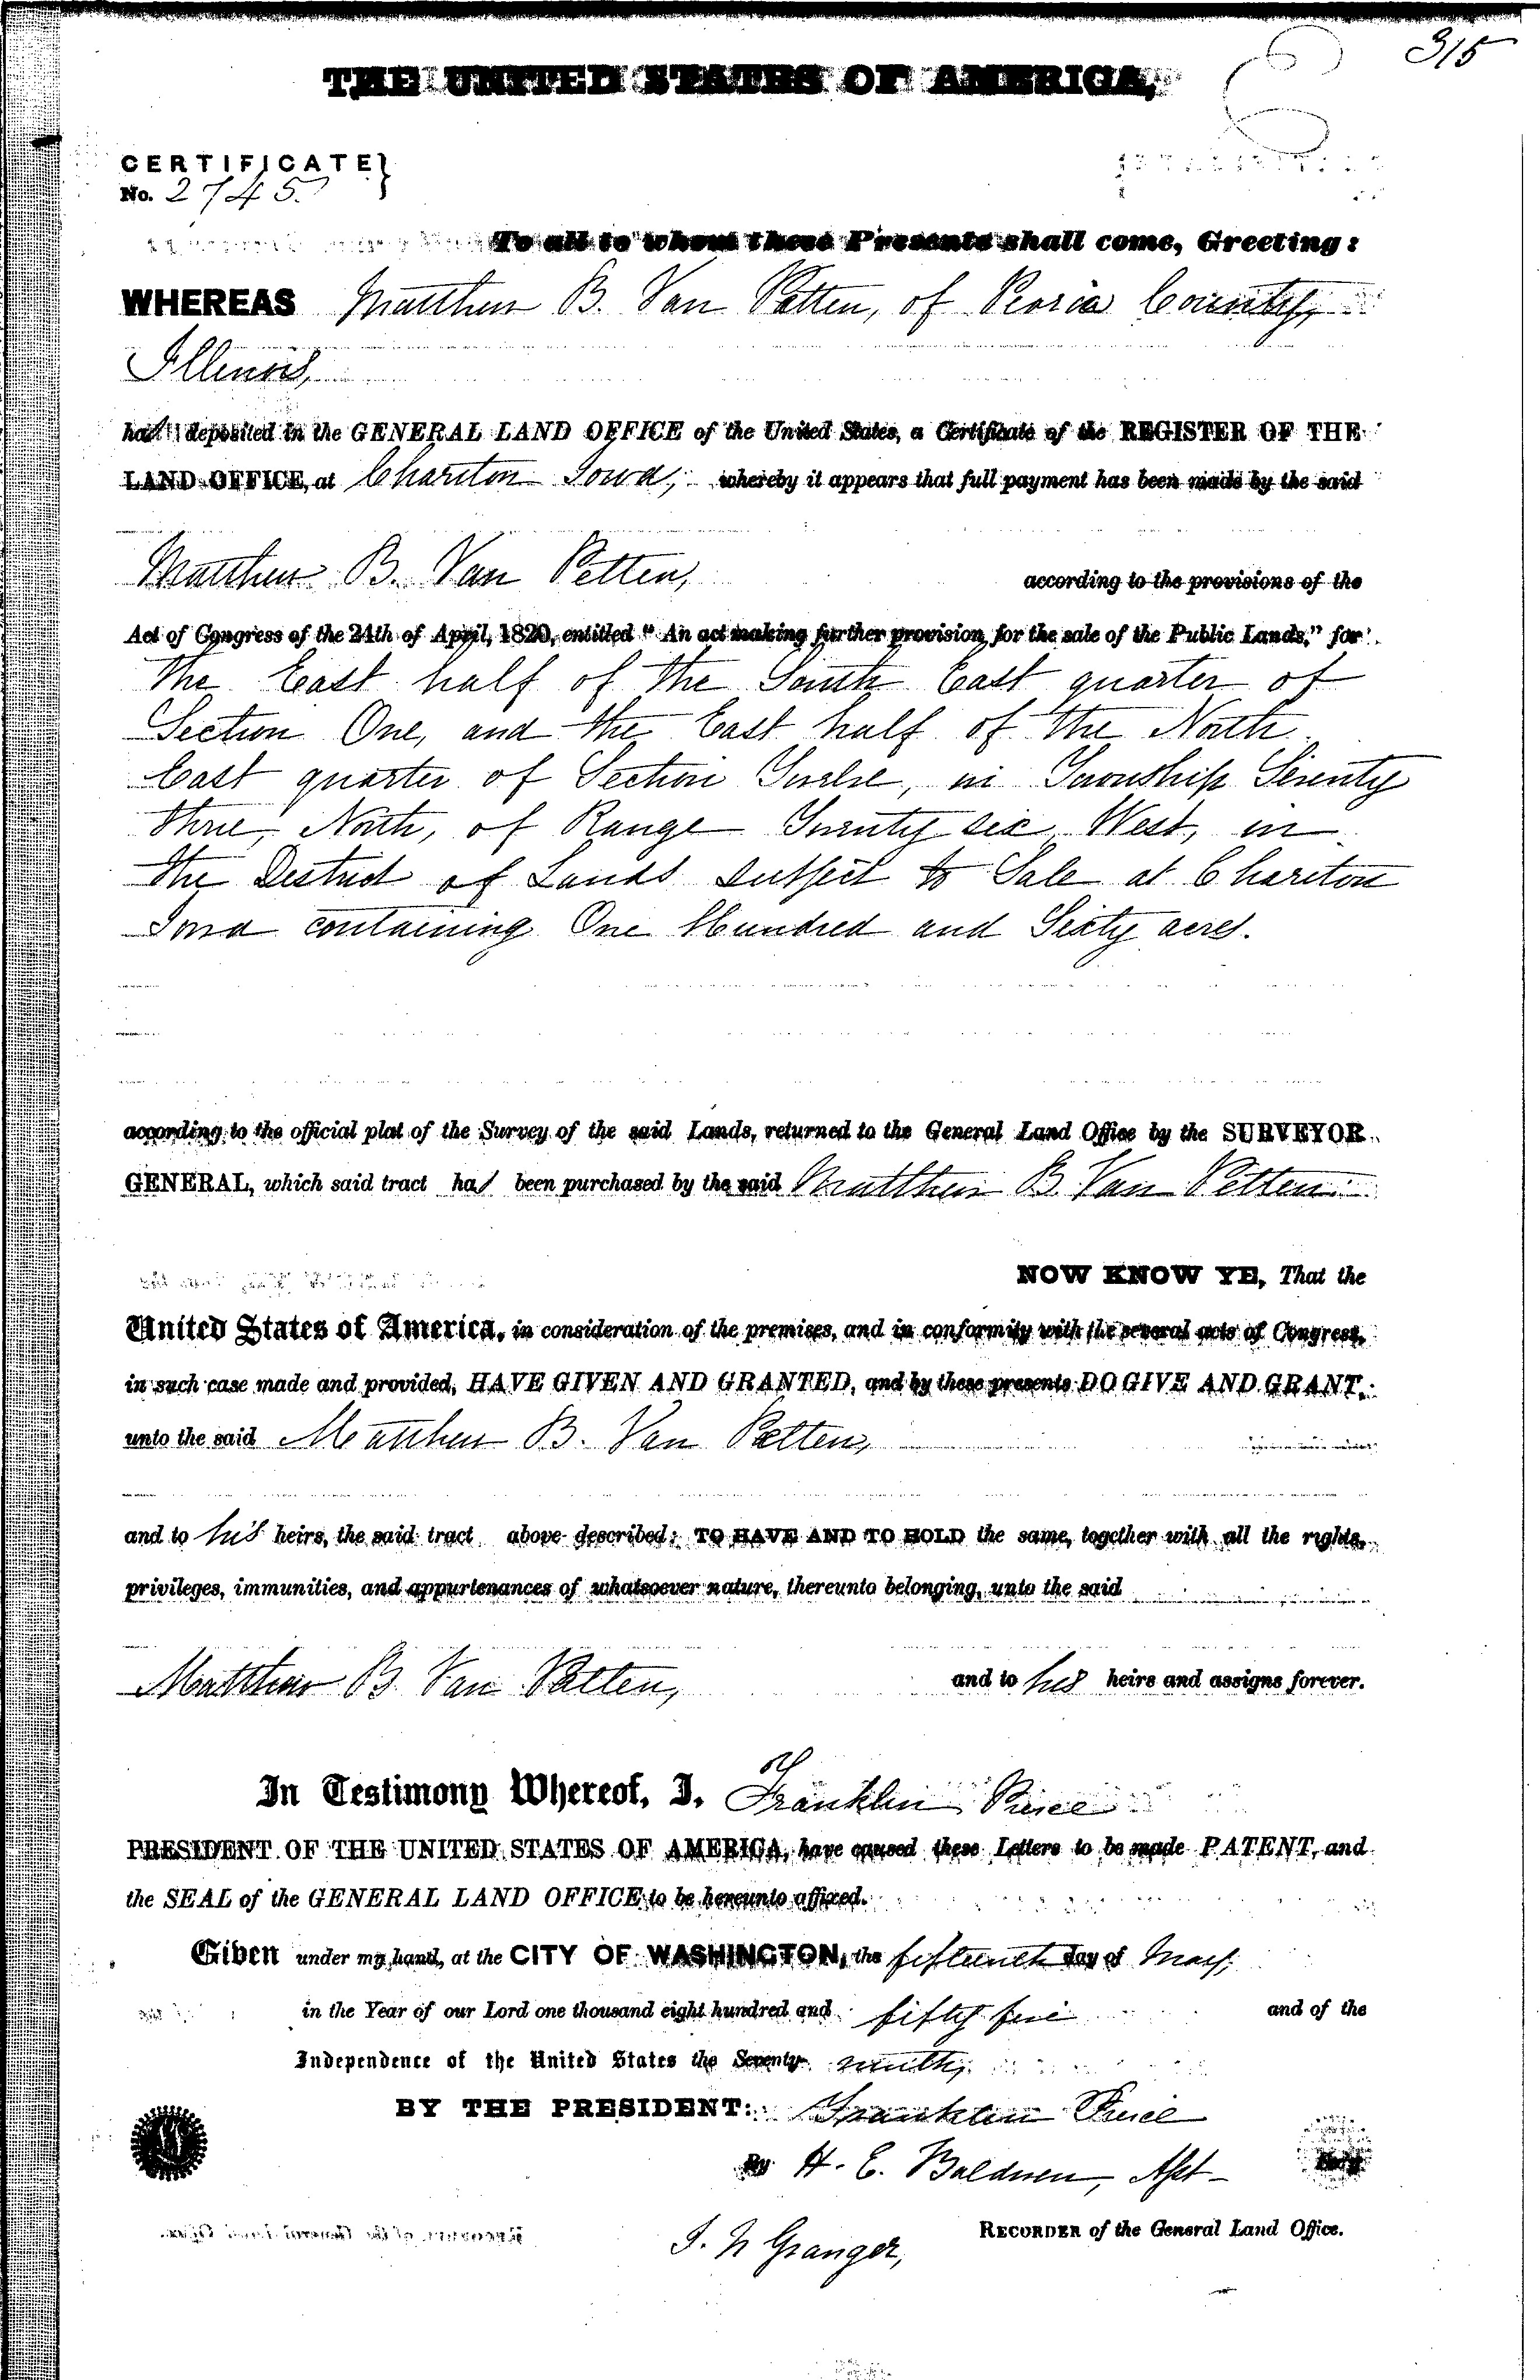 315
THE UNITED STATES OF AMERICA,
CERTIFICATE }
No. 2745.
To all to whom these Presents shall come, Greeting:
WHEREAS Matthew B. Van Petten, of Peoria County,
Illinois,
has deposited in the GENERAL LAND OFFICE of the United States, a Certificate of the REGISTER OF THE
LAND OFFICE, at Chariton Iowa, whereby it appears that full payment has been made by the said
Matthew B. Van Petten, according to the provisions of the
Act of Congress of the 24th of April, 1820, entitled "An act making further provision for the sale of the Public Lands," for
the East half of the South East quarter of
Section One, and the East half of the North
East quarter of Section Twelve, in Township Seventy
three, North, of Range Twenty six West, in
the District of Lands subject to Sale at Chariton
Iowa containing One Hundred and Sixty acres.
according to the official plat of the Survey of the said Lands, returned to the General Land Office by the SURVEYOR
GENERAL, which said tract has been purchased by the said Matthew B. Van Petten
NOW KNOW YE, That the
United States of America, in consideration of the premises, and in conformity with the several acts of Congress,
in such case made and provided, HAVE GIVEN AND GRANTED, and by these presents DO GIVE AND GRANT,
unto the said Matthew B. Van Petten,
and to his heirs, the said tract above described; TO HAVE AND TO HOLD the same, together with all the rights,
privileges, immunities, and appurtenances of whatsoever nature, thereunto belonging, unto the said
Matthew B. Van Petten, and to his heirs and assigns forever.
In Testimony Whereof, I, Franklin Pierce
PRESIDENT OF THE UNITED STATES OF AMERICA, have caused these Letters to be made PATENT, and
the SEAL of the GENERAL LAND OFFICE to be hereunto affixed.
Given under my hand, at the CITY OF WASHINGTON, the fifteenth day of May,
in the Year of our Lord one thousand eight hundred and fifty five and of the
Independence of the United States the Seventy ninth,
BY THE PRESIDENT: Franklin Pierce
By H. E. Baldwin, Asst
J. N Granger, RECORDER of the General Land Office.